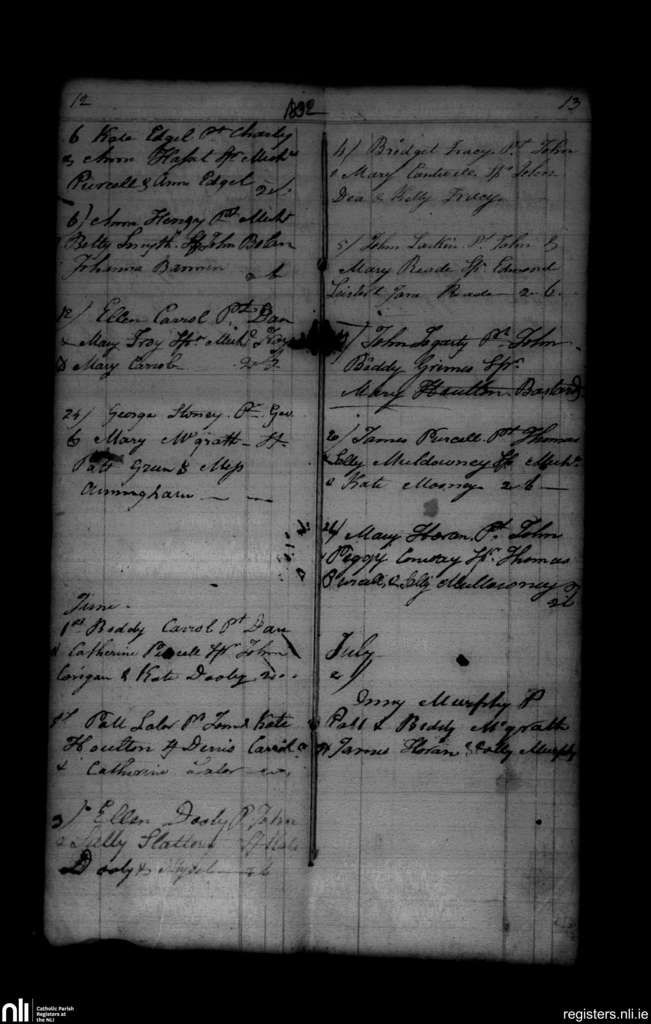 12
1832
6 Kate Edgel Pt Charley
& Ann Hafat Sp Mich
Purcell & Ann Edgel 2
6/ Ann Henesy Pt Mich
Betty Smyth Sp John Bolan
Johanna Bannon 2 6
12/ Ellen Carrol Pt Dan
& Mary Troy Sp Mich Troy
& Mary Carrol 2
24/ George Stoney Pt Geo
& Mary McGrath Sp
Patt Green & Miss
Armingham
June
1st Biddy Carrol Pt Dan
& Catherine Purcell Sp John
Corigan & Kate Dooly
Patt Lalor Pt & Kate
Houlton Sp Denis Carrol
& Catherine Lalor
3/ Ellen Dooly Pt John
& Sally Slattery Sp
Dooly &
13
4/ Bridget Tracy Pt John
& Mary Sp John
Dea & Kitty Tracy
5/ John Larkin Pt John &
Mary Reade Sp Edmond
Jane Reade 2 6
John Fogarty Pt John
Biddy Grimes Sp
Mary Houlton Bastard
20/ James Purcell Pt Thomas
Sally Muldowney Sp Mich
& Kate Mooney 2 6
24/ Mary Horan Pt John
Peggy Conway Sp Thomas
Purcell & Sally Muldowney
2
July
2/
Murphy P
Patt & Biddy McGrath
Sp James Horan & Sally Murphy
nli
Catholic Parish
Registers at
the NLI
registers.nli.ie